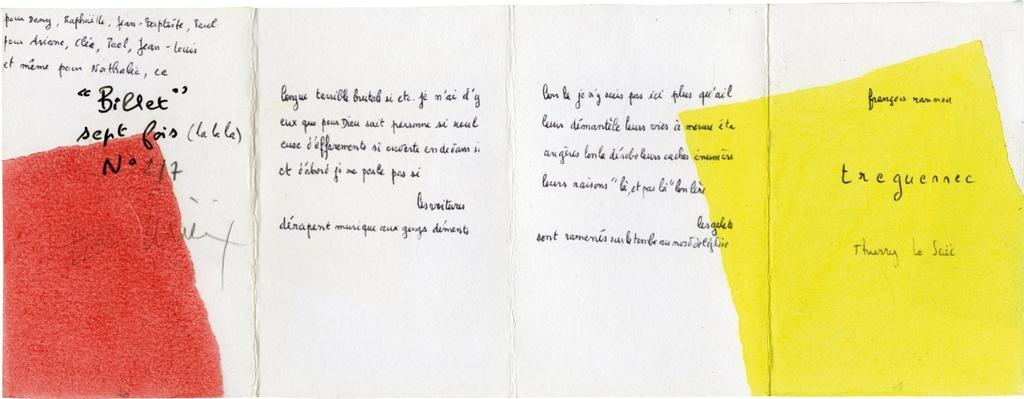 pour Dany, Raphaëlle, Jean-Baptiste, Paul
pour Ariane, Cléa, Paol, Jean-Louis
et même pour Nathalie, ce
"Billet"
sept fois (la la la)
N° 2/7
longue terrible brutale si etc. je n'ai d'y
eux que pour Dieu sait personne si seul
euse d'effarements si ouverte en dedans si
et d'abord je ne parle pas si
les voitures
dérapent musique aux gongs déments
lon la je n'y suis pas ici plus qu'ail
leurs démantèle leurs vies à mesure éta
angères lon la dérobe leurs caches énumère
leurs raisons "là, et pas là" lon lère
les galets
sont ramenés sur la tombe au nord de l'église
françois rannou
treguennec
Thierry Le Saëc